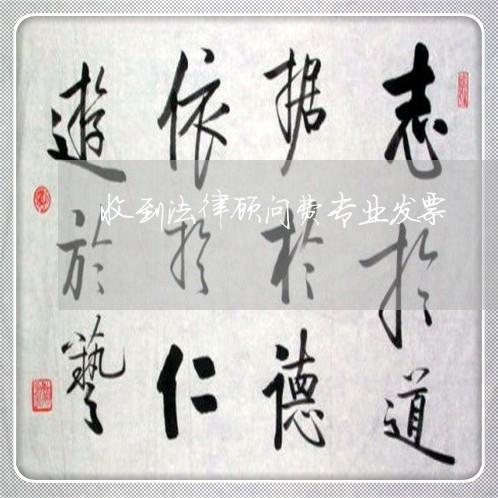 志於道
据於德
依於仁
遊於藝
收到法律顾问费专业发票